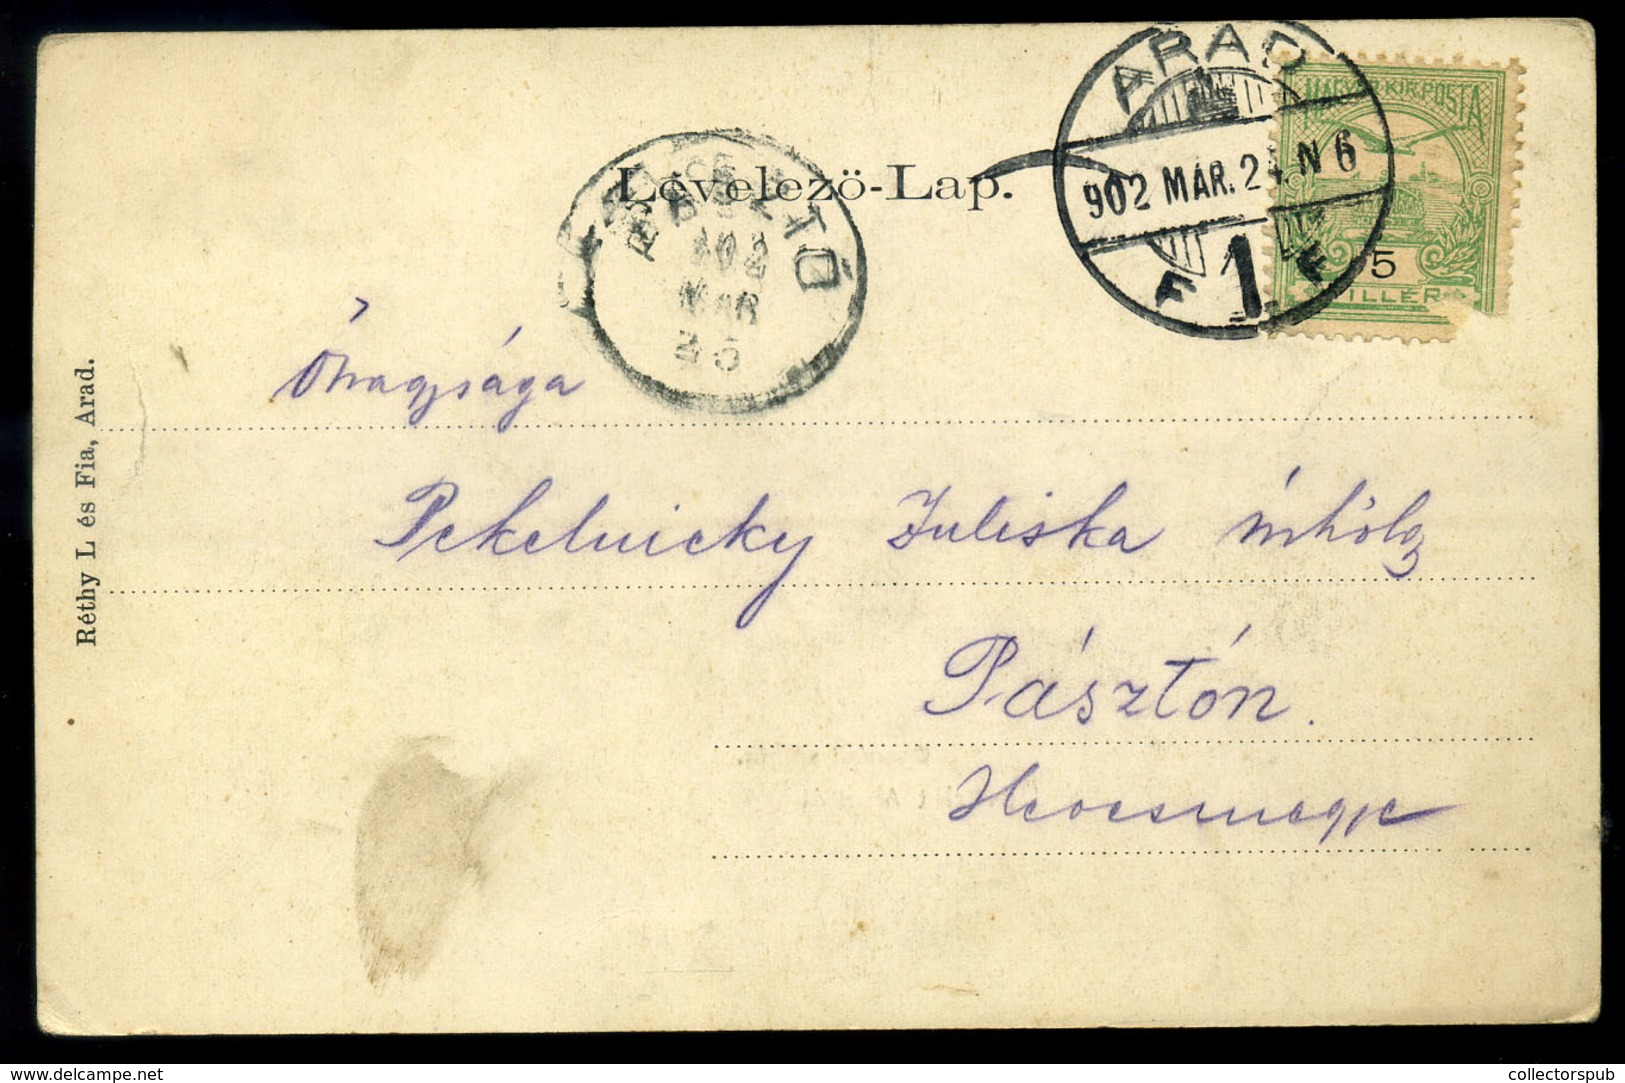 ARAD
MAGYAR KIR. POSTA
Levelező-Lap.
902 MÁR. 24. N 6
F 1 F
5
FILLÉR
PÁSZTÓ
902
MAR
25
Őnagysága
Pekelnicky Juliska úrhölgy
Pásztón.
Hevesmegye
Réthy L és Fia, Arad.
www.delcampe.net
collectorspub